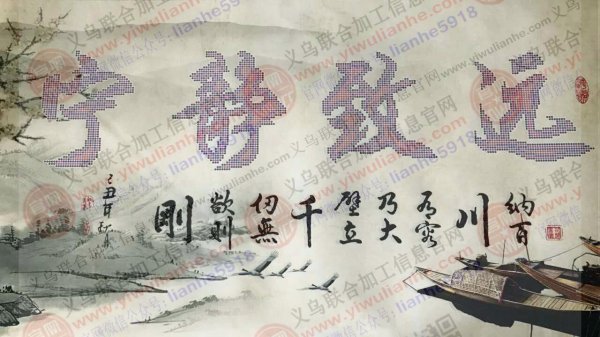 宁静致远
纳百
川
有容
乃大
壁立
千
仞無
欲則
剛
己丑
义乌联合加工信息官网
www.yiwulianhe.com
官网微信公众号: lianhe5918